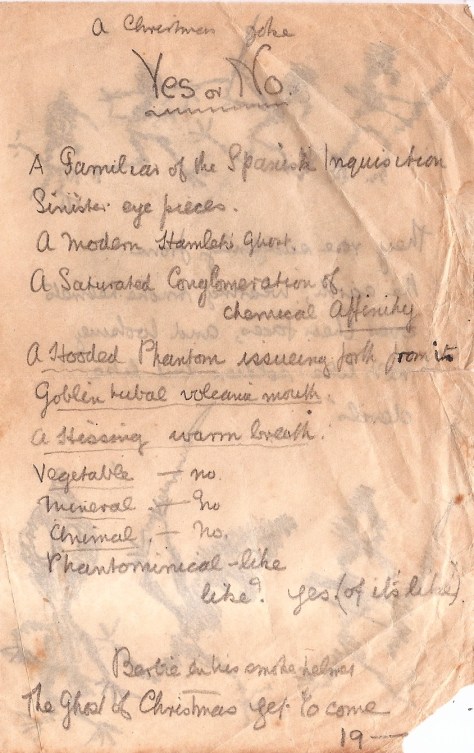 A Christmas Joke
Yes or No.
A Familiar of the Spanish Inquisition
Sinister eye pieces.
A Modern Hamlet's Ghost.
A Saturated Conglomeration of
chemical Affinity
A Hooded Phantom issueing forth from its
Goblin tubal volcanic mouth,
a Hissing warm breath.
Vegetable — no.
Mineral. — No
Animal. — No.
Phantominical-like
like? yes (of its like).
Bertie in his smoke helmet
The Ghost of Christmas yet to come
19—